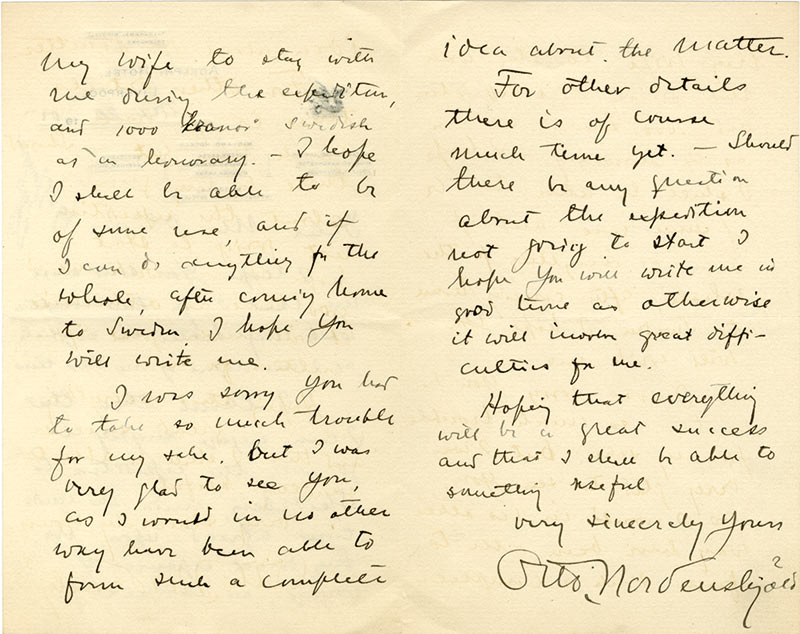 my wife to stay with
me during the expedition,
and 1000 kronor swedish
as an honorary. – I hope
I shall be able to be
of some use, and if
I can do anything for the
whole, after coming home
to Sweden, I hope you
will write me.
I was sorry you had
to take so much trouble
for my sake, but I was
very glad to see you,
as I would in no other
way have been able to
form such a complete
idea about the matter.
For other details
there is of course
much time yet. – Should
there be any question
about the expedition
not going to start I
hope you will write me in
good time as otherwise
it will involve great diffi-
culties for me.
Hoping that everything
will be a great success
and that I shall be able to
something useful
very sincerely yours
Otto Nordenskjöld